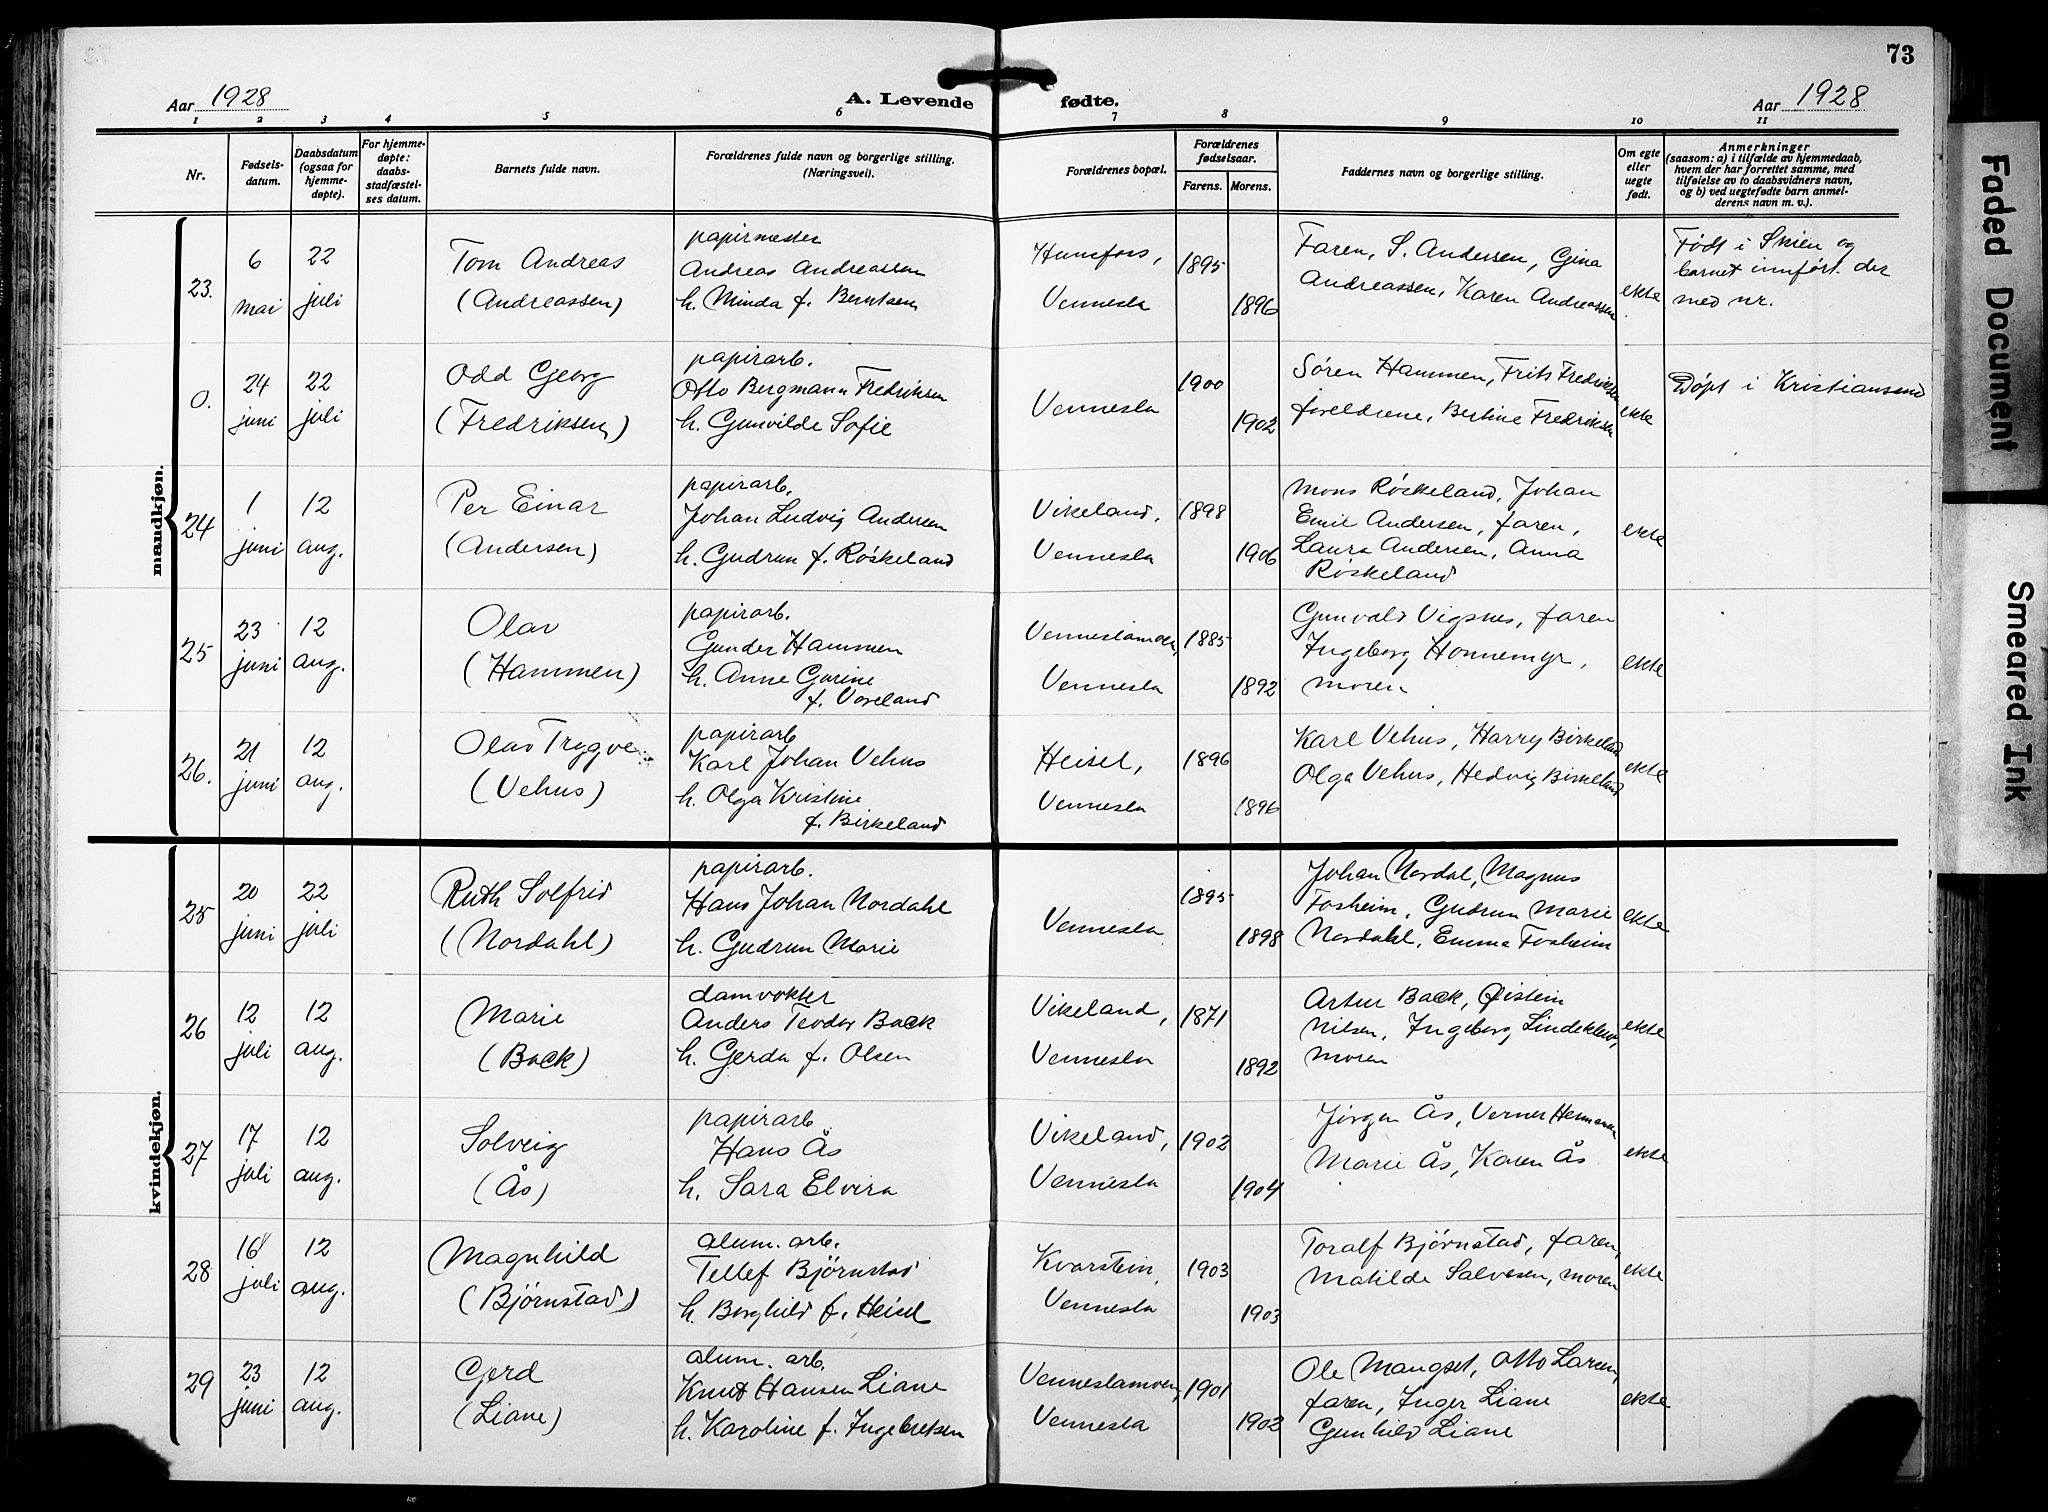 73
Aar 1928
A. Levende fødte.
Aar 1928
1 2 3 4 5 6 7 8 9 10 11
Nr.
Fødsels-
datum.
Daabsdatum
(ogsaa for
hjemme-
døpte).
For hjemme-
døpte:
daabs-
stadfæstel-
ses datum.
Barnets fulde navn.
Forældrenes fulde navn og borgerlige stilling.
(Næringsvei).
Forældrenes bopæl.
Forældrenes
fødselsaar.
Farens. Morens.
Faddernes navn og borgerlige stilling.
Om egte
eller
uegte
født.
Anmerkninger
(saasom: a) i tilfælde av hjemmedaab,
hvem der har forrettet samme, med
tilføielse av to daabsvidners navn,
og b) ved uegtefødte barn anmel-
derens navn m. v.).
mandkjøn.
23.
6
mai
22
juli
Tom Andreas
(Andreassen)
papirmester
Andreas Andreassen
h. Minda f. Berntsen
Hunsfoss,
Vennesla
1895
1896
Faren, S. Andersen, Gina
Andreassen, Karen Andreassen
ekte
Født i Skien og
barnet innført der
med nr.
0.
24
juni
22
juli
Odd Georg
(Fredriksen)
papirarb.
Otto Bergmann Fredriksen
h. Gunvilde Sofie
Vennesla
1900
1902
Søren Hammen, Frits Fredriksen
foreldrene, Bertine Fredriksen
ekte
Døpt i Kristiansand
24
1
juni
12
aug.
Per Einar
(Andersen)
papirarb.
Johan Ludvig Andersen
h. Gudrun f. Røskeland
Vikeland,
Vennesla
1898
1906
Mons Røskeland, Johan
Emil Andersen, faren,
Laura Andersen, Anna
Røskeland
ekte
25
23
juni
12
aug.
Olav
(Hammen)
papirarb.
Gunder Hammen
h. Anne Gurine
f. Voreland
Venneslamoen,
Vennesla
1885
1892
Gunvald Vigsnes, faren
Ingeborg Honnemyr,
moren
ekte
26.
21
juni
12
aug.
Olav Trygve
(Vehus)
papirarb
Karl Johan Vehus
h. Olga Kristine
f. Birkeland
Heisel,
Vennesla
1896
1896
Karl Vehus, Harry Birkeland
Olga Vehus, Hedvig Birkeland
ekte
kvindekjøn.
25
20
juni
22
juli
Ruth Solfrid
(Nordahl)
papirarb.
Hans Johan Nordahl
h. Gudrun Marie
Vennesla
1895
1898
Johan Nordal, Magnus
Fosheim, Gudrun Marie
Nordahl, Emma Fosheim
ekte
26
12
juli
12
aug.
Marie
(Back)
damvokter
Anders Teodor Back
h. Gerda f. Olsen
Vikeland,
Vennesla
1871
1892
Artur Back, Øistein
Nilsen, Ingeborg Lindekleiv,
moren
ekte
27
17
juli
12
aug.
Solveig
(Ås)
papirarb
Hans Ås
h. Sara Elvira
Vikeland,
Vennesla
1902
1904
Jørgen Ås, Verner Hermansen
Marie Ås, Karen Ås
ekte
28
16
juli
12
aug.
Magnhild
(Bjørnstad)
alum. arb.
Tellef Bjørnstad
h. Borghild f. Heisel
Kvarstein,
Vennesla
1903
1903
Toralf Bjørnstad, faren,
Matilde Salvesen, moren
ekte
29
23
juni
12
aug.
Gerd
(Liane)
alum. arb.
Knut Hansen Liane
h. Karoline f. Ingebretsen
Venneslamoen,
Vennesla
1901
1902
Ole Mangset, Otto Larsen,
faren, Inger Liane
Gunhild Liane
ekte
Faded Document
Smeared Ink